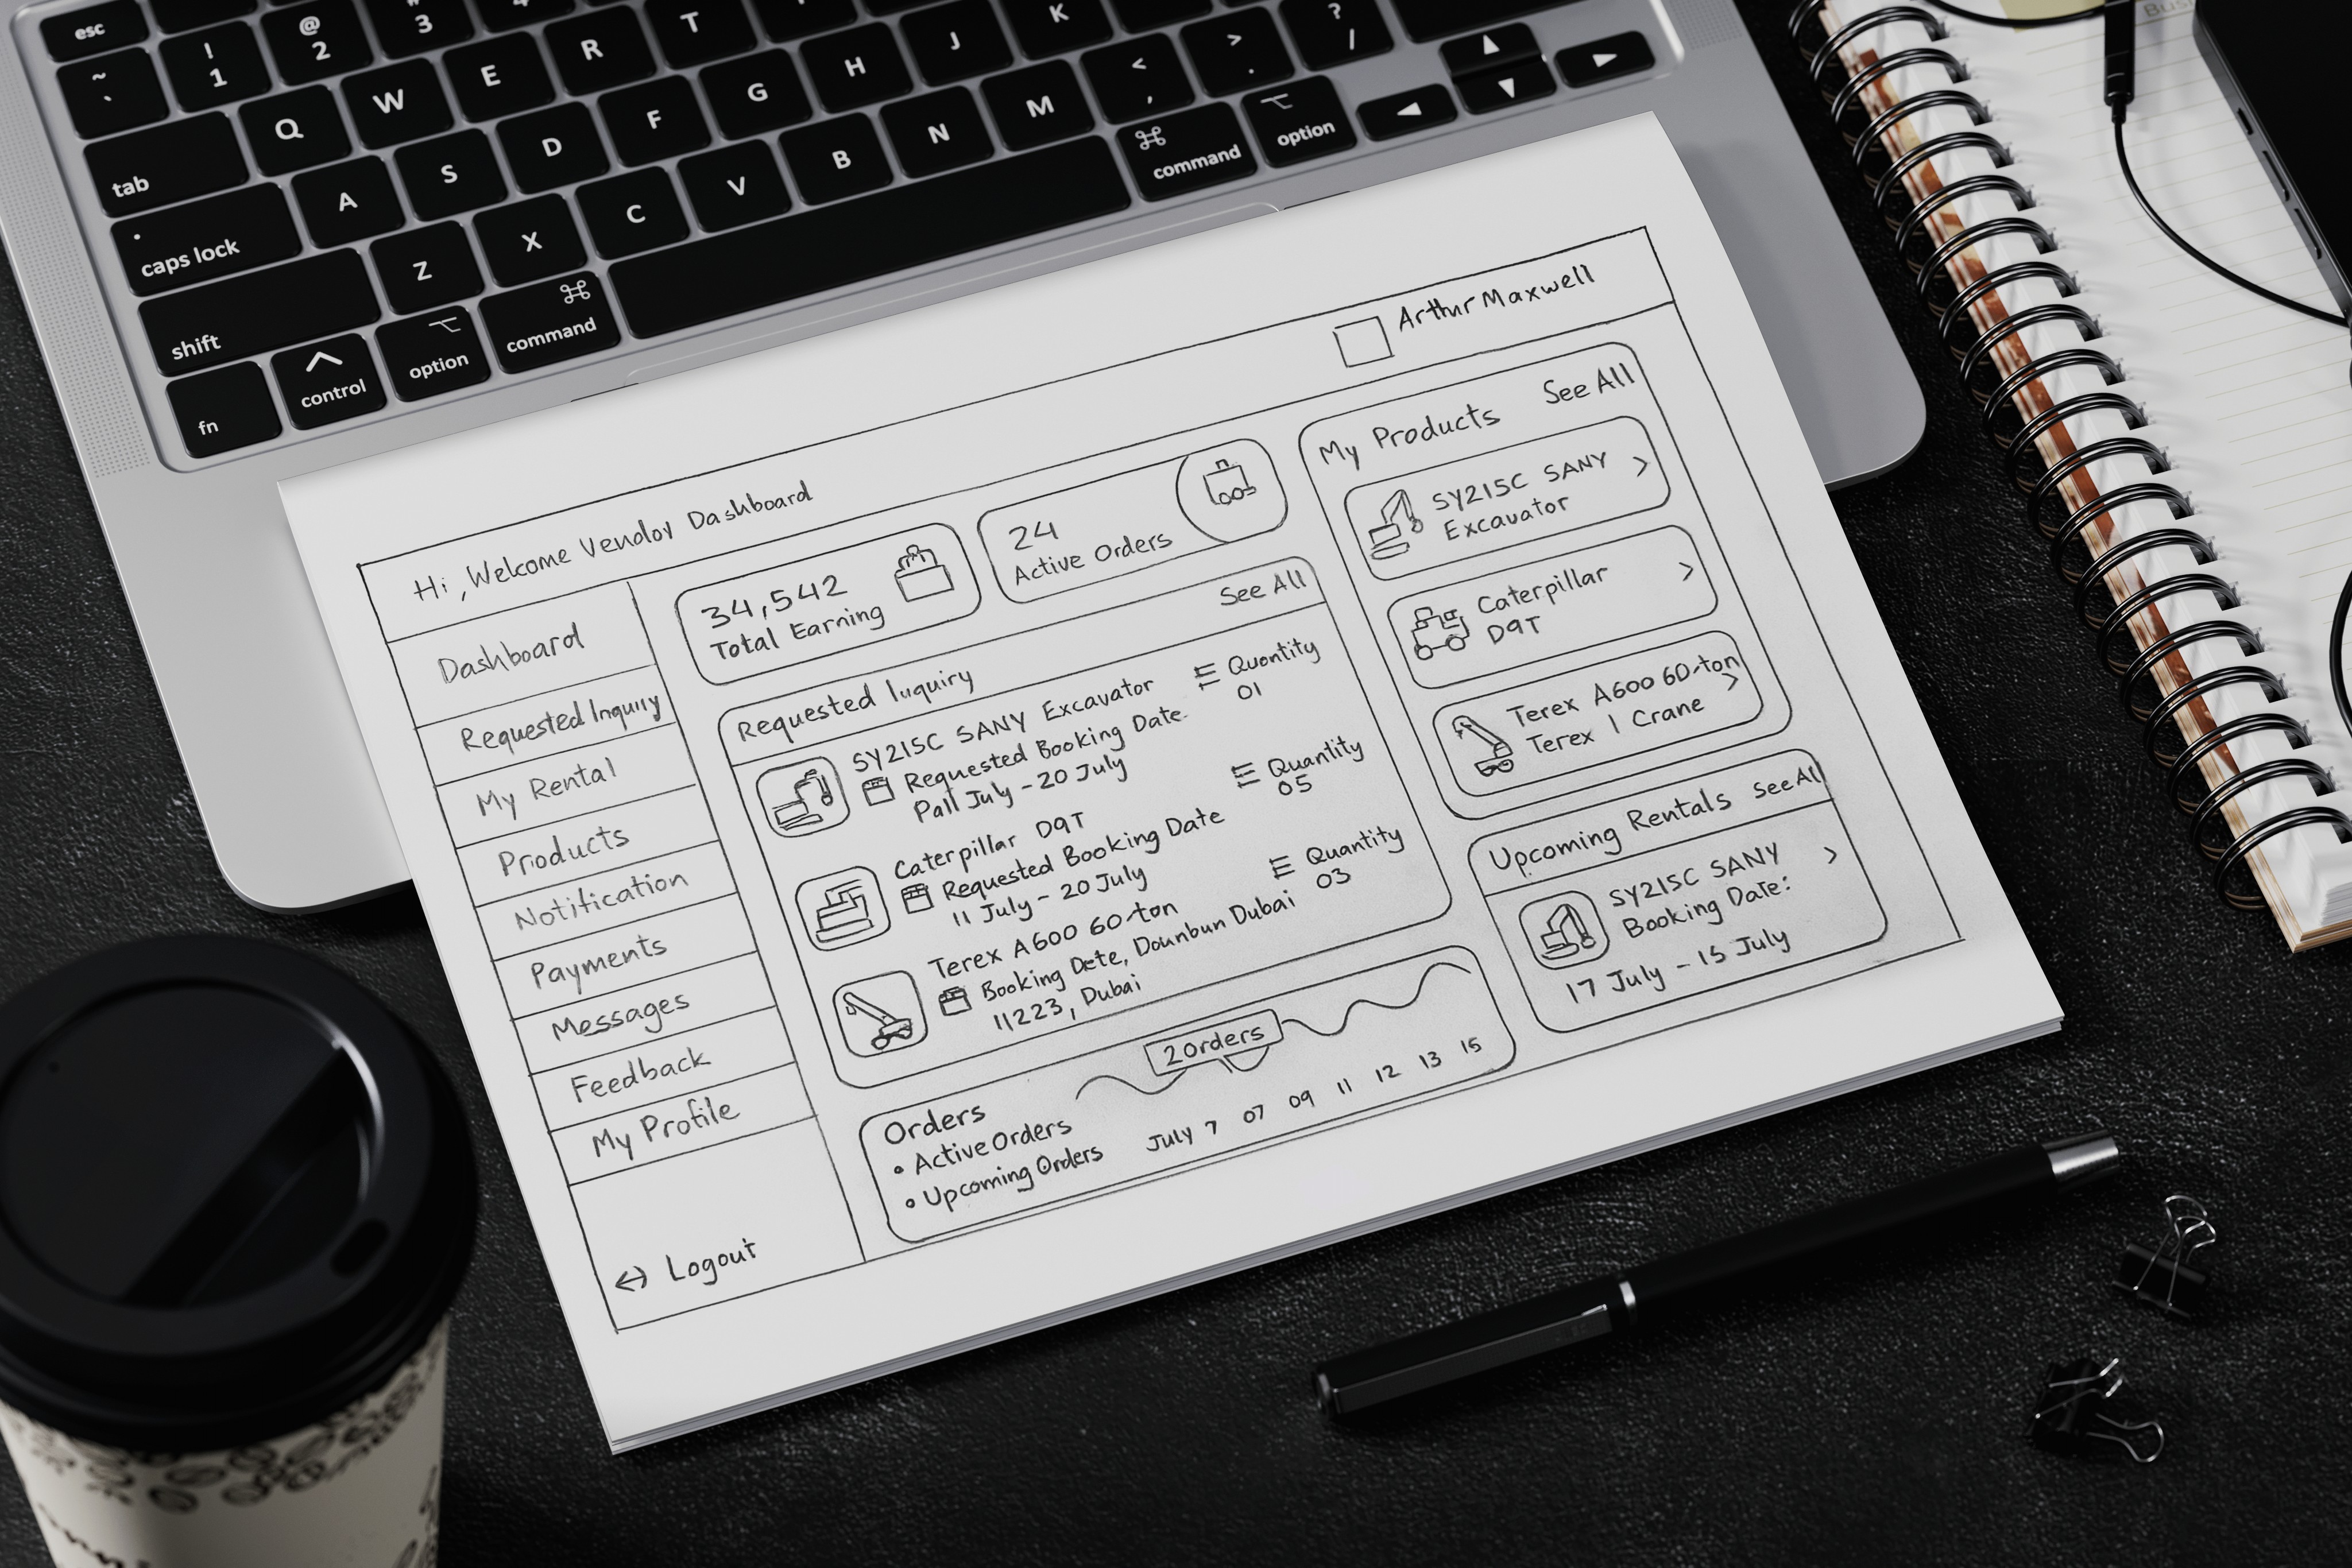 esc
~
`
!
1
@
2
#
3
4
tab
Q
W
E
R
T
caps lock
A
S
D
F
G
H
J
K
shift
Z
X
C
V
B
N
M
<
,
>
.
?
/
fn
control
option
command
command
option
Busi
Hi, Welcome Vendor Dashboard
Arthur Maxwell
Dashboard
Requested Inquiry
My Rental
Products
Notification
Payments
Messages
Feedback
My Profile
Logout
34,542
Total Earning
24
Active Orders
Requested Iuquiry
See All
SY215C SANY Excavator
Requested Booking Date.
Pall July - 20 July
Quontity
01
Caterpillar D9T
Requested Booking Date
11 July - 20 July
Quantity
05
Terex A600 60-ton
Booking Dete, Dounbun Dubai
11223, Dubai
Quantity
03
Orders
• Active Orders
• Upcoming Orders
2 Orders
July 7 07 09 11 12 13 15
My Products See All
SY215C SANY
Excavator
Caterpillar
D9T
Terex A600 60-ton
Terex 1 Crane
Upcoming Rentals See All
SY215C SANY
Booking Date:
17 July - 15 July